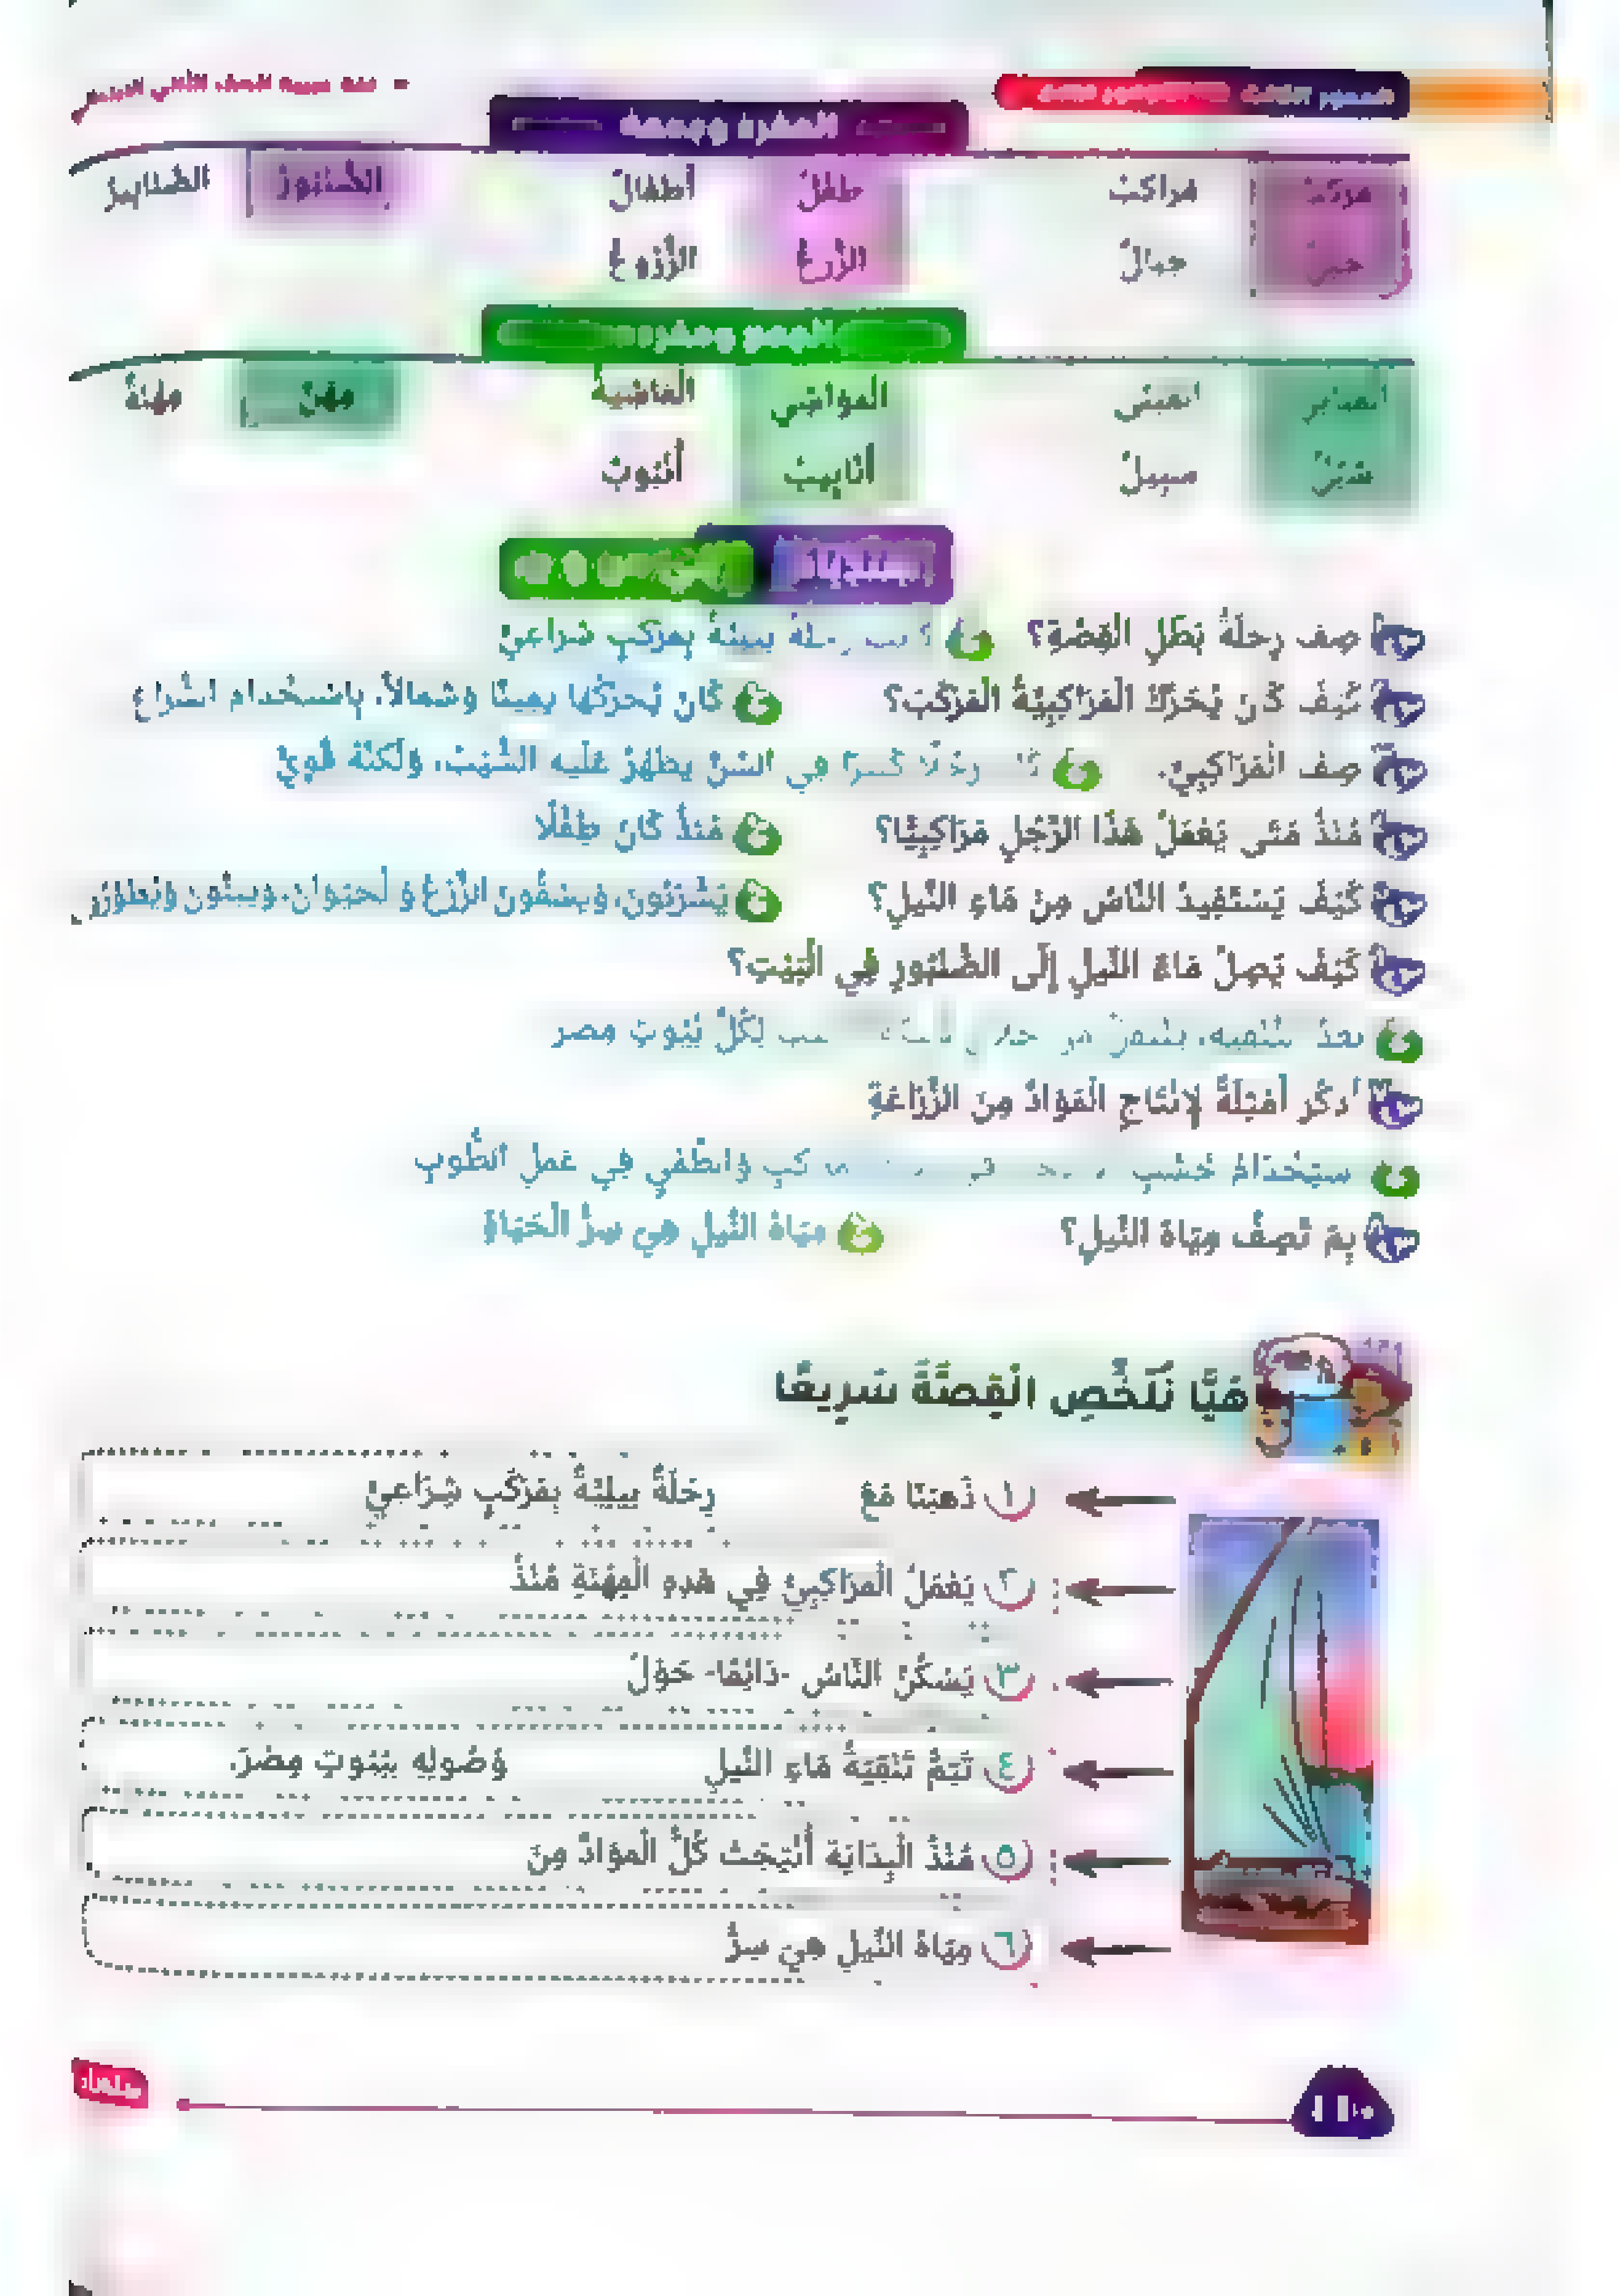 لغة عربية للصف الثاني الابتدائي
المفرد وجمعه
مركب مراكب طفل أطفال الصنبور الصنابير
جبل جبال الزرع الزروع
الجمع ومفرده
المباني المبنى المواشي الماشية مهن مهنة
سبل سبيل أنابيب أنبوب
صف رحلة بطل القصة؟ رحلة نيلية بمركب شراعي
كيف كان يحرك المراكبية المركب؟ كان يحركها يمينًا وشمالًا، باستخدام الشراع
صف المراكبي. رجلًا كبيرًا في السن يظهر عليه الشيب، ولكنه قوي
منذ متى يعمل هذا الرجل مراكبيًّا؟ منذ كان طفلًا
كيف يستفيد الناس من ماء النيل؟ يشربون، ويسقون الزرع والحيوان، ويبنون ويطورون
كيف يصل ماء النيل إلى الصنبور في البيت؟
بعد تنقيته، لكل بيوت مصر
أذكر أمثلة لإنتاج المواد من الزراعة
خشب والطمي في عمل الطوب
بم تصف مياه النيل؟ مياه النيل هي سر الحياة
هيا نلخص القصة سريعًا
١ ذهبنا مع رحلة نيلية بمركب شراعي
٢ يعمل المراكبي في هذه المهنة منذ
٣ يسكن الناس -دائمًا- حول
٤ تتم تنقية ماء النيل وصوله بيوت مصر.
٥ منذ البداية أنتجت كل المواد من
٦ مياه النيل هي سر
١١٠